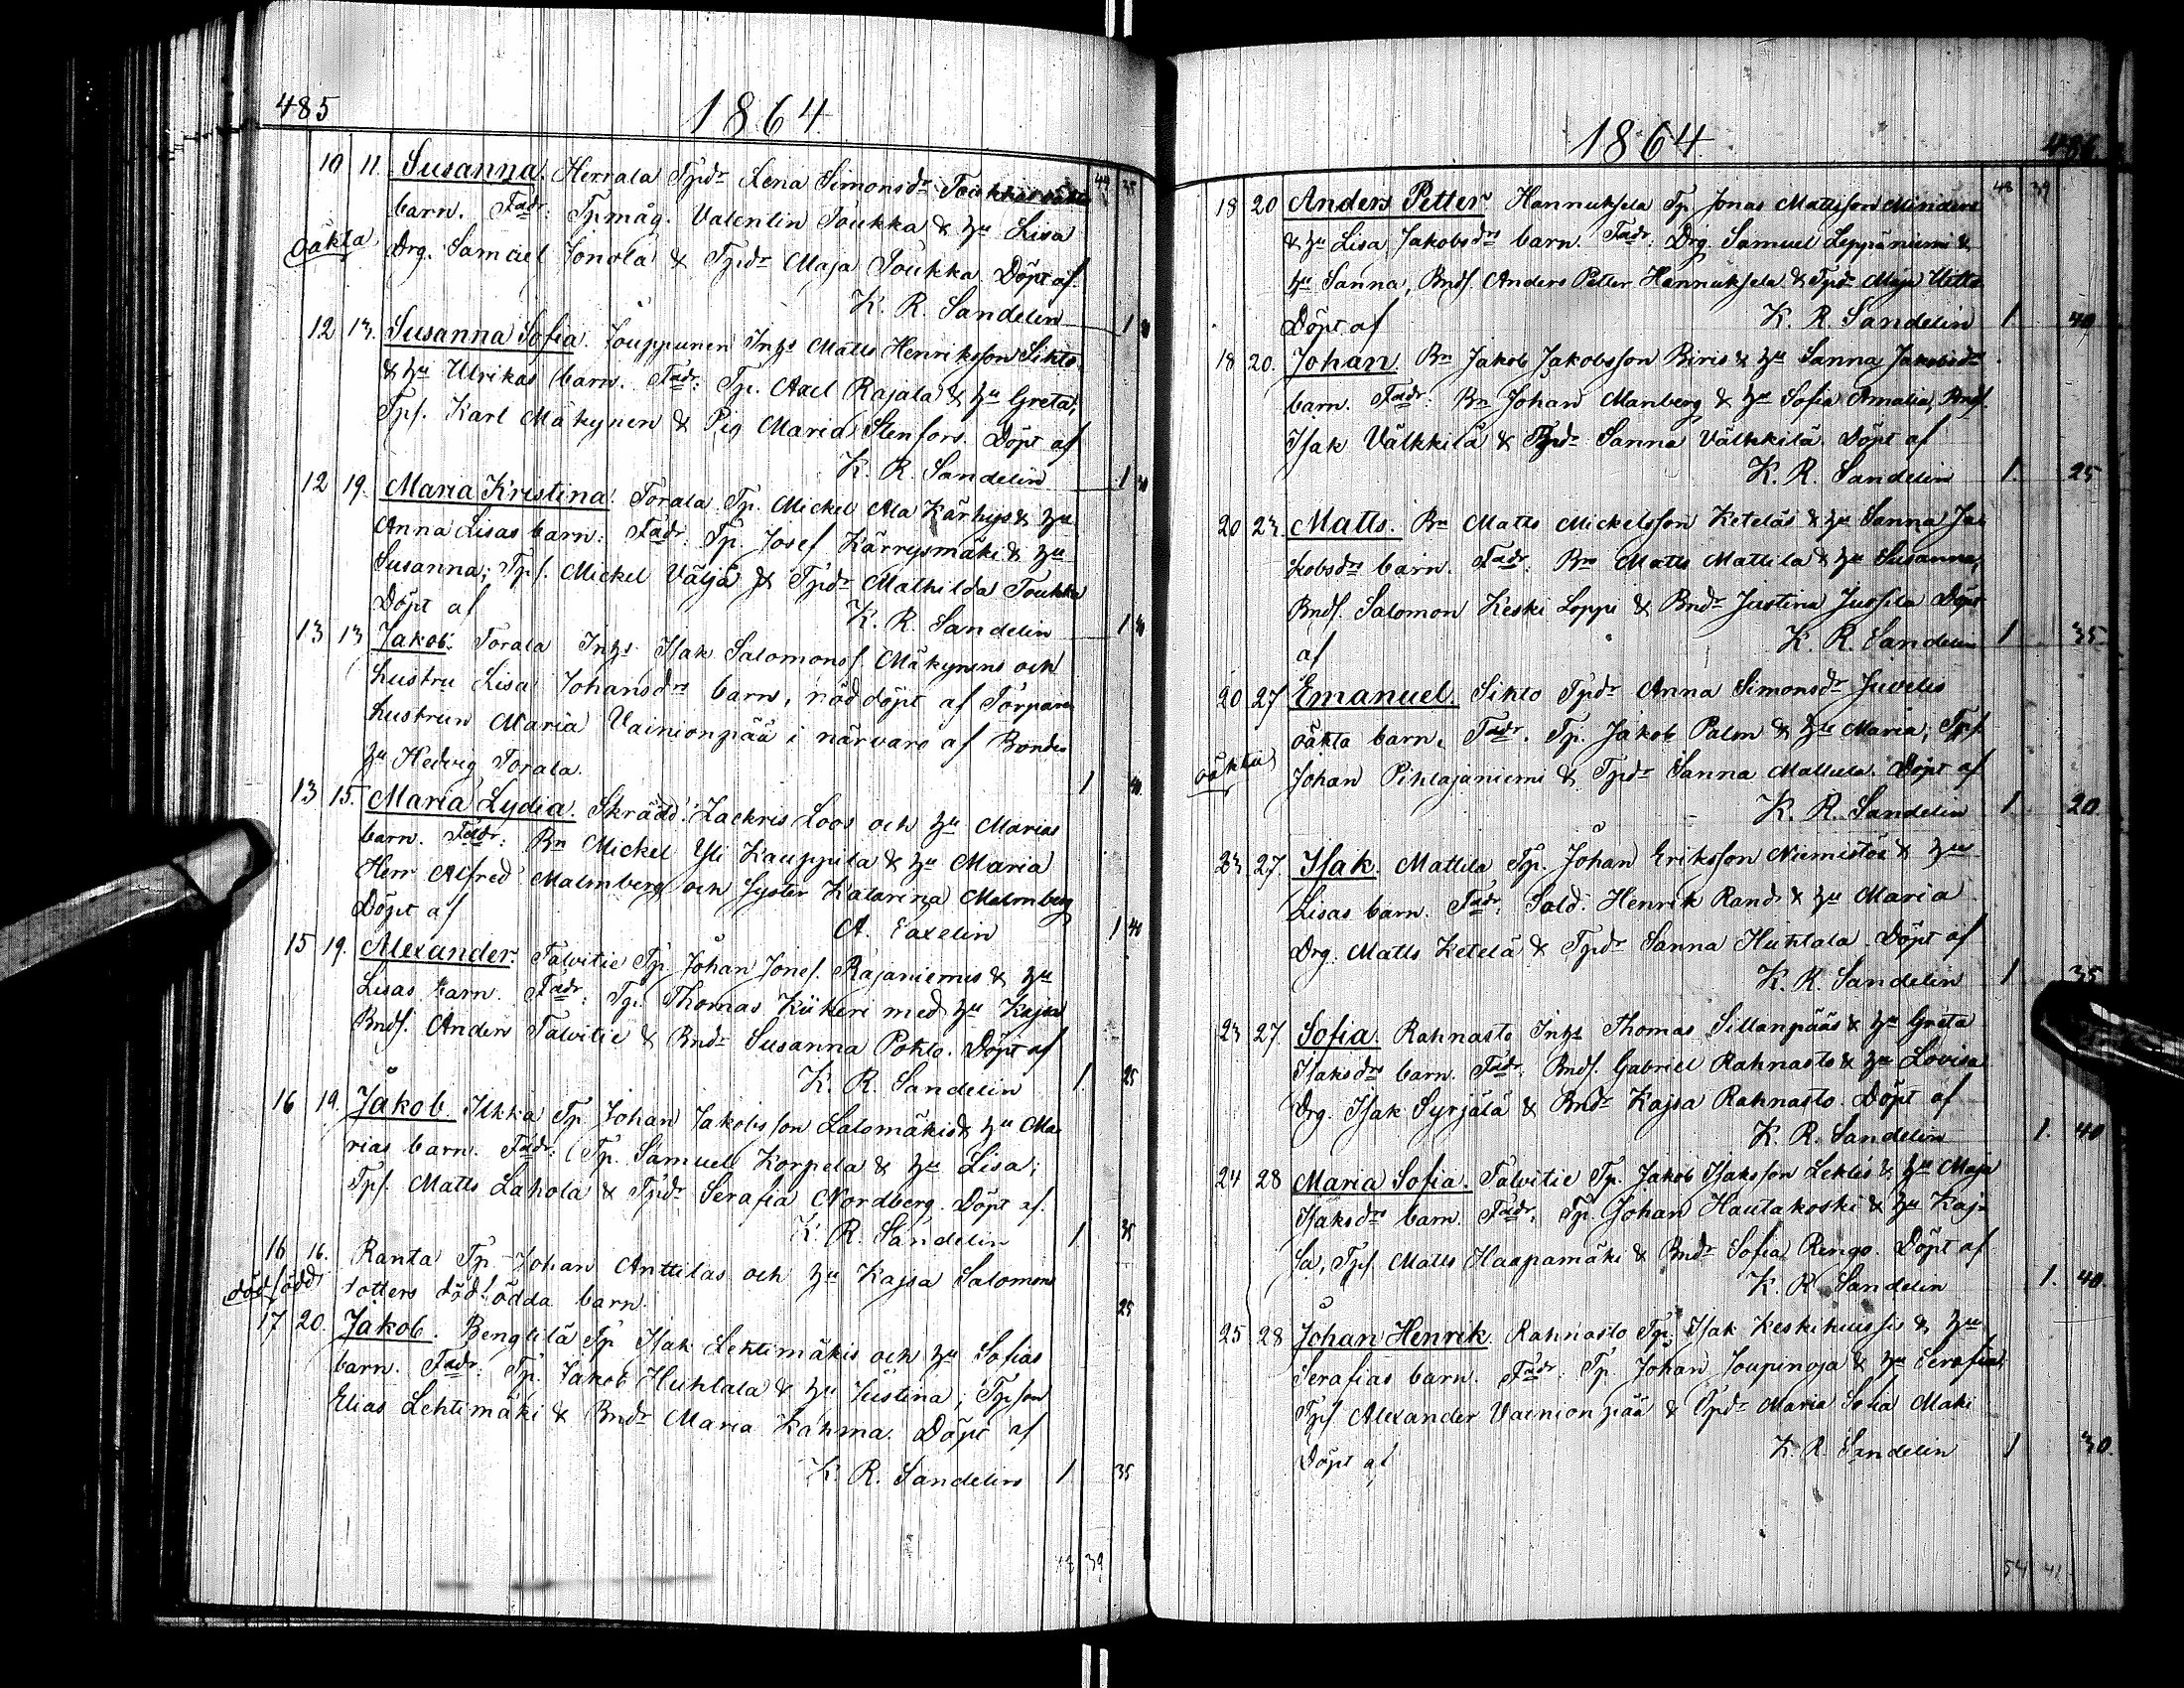 485
1864
44 35
10 11. Susanna. Herrala Tpdr Lena Simonsdr Toukkas oäkta
barn. Fadr: Tpmåg. Valentin Toukka & hu Lisa
oäkta Drg. Samuel Jonola & Tpdr Maja Toukka. Döpt af
K. R. Sandelin 1 30
12 13. Susanna Sofia. Jouppunen Inhs Matts Henriksson Sikto
& hu Ulrikas barn. Fadr: Tp. Axel Rajala & hu Greta,
Tps. Karl Mäkynen & Pig Maria Stenfors. Döpt af
K. R. Sandelin 1 30
12 19. Maria Kristina. Torala Tp. Mickel Ala Kärhys & hu
Anna Lisas barn. Fadr: Tp. Josef Kärrysmäki & hu
Susanna; Tps. Mickel Väljä & Tpdr Mathilda Toukka
Döpt af K. R. Sandelin 1 40
13 13 Jakob. Torala Inhs Isak Salomons. Mäkynens och
hustru Lisa Johansdrs barn, nöddöpt af Torpare
hustrun Maria Vainionpää i närvaro af Bonde
hu Hedvig Torala. 1 40.
13 15. Maria Lydia. Skrädd. Zackris Loos och hu Marias
barn. Fadr: Bn Mickel Yli Kauppila & hu Maria
Herr Alfred Malmberg och Syster Katarina Malmberg
Döpt af A. Eaxelin 1 40
15 19. Alexander. Talvitie Tp Johan Jones. Rajaniemis & hu
Lisas barn. Fadr: Tp. Thomas Kiikeri med hu Kajsa
Bnds. Anders Talvitie & Bndr Susanna Pohto. Döpt af
K. R. Sandelin 1. 25
16 19. Jakob. Ilkka Tp Johan Jakobsson Lalomäkis & hu Ma-
rias barn. Fadr: Tp. Samuel Korpela & hu Lisa;
Tps. Matts Lahola & Tpdr Serafia Nordberg. Döpt af.
K. R. Sandelin 1. 35
16 16. Ranta Tp Johan Anttilas och hu Kajsa Salomons
dödfödd dotters dödfödda barn. 25
17 20. Jakob. Bengtilä Tp Isak Lehtimäkis och hu Sofias
barn. Fadr: Tp. Jakob Huhtala & hu Justina; Tpson
Elias Lehtimäki & Bndr Maria Kahma. Döpt af
K. R. Sandelin 1. 35
48 39
1864
486
48 39
18 20 Anders Petter. Hannuksela Tp Jonas Mattsson Minders
& hu Lisa Jakobsdrs barn. Fadr: Drg. Samuel Leppäniemi &
hu Sanna, Bnds. Anders Petter Hannuksela & Tpdr Maja Uitto
Döpt af K. R. Sandelin 1. 40
18 20. Johan. Bn Jakob Jakobsson Biris & hu Sanna Jakobsdrs
barn. Fadr: Bn Johan Manberg & hu Sofia Amalia, Bnds.
Isak Välkkilä & Tpdr Sanna Välkkilä. Döpt af
K. R. Sandelin 1. 25
20 23. Matts. Bn Matts Mickelsson Keteläs & hu Sanna Ja-
kobsdrs barn. Fadr: Bn Matts Mattila & hu Susanna,
Bnds. Salomon Keski Loppi & Bndr Justina Jussila Döpt
af K. R. Sandelin 1 35
20 27 Emanuel. Sikto Tpdr Anna Simonsdr Juvelis
oäkta barn. Fadr. Tp. Jakob Palm & hu Maria, Tps.
oäkta Johan Pihlajaniemi & Tpdr Sanna Mattula. Döpt af
K. R. Sandelin 1. 20
23 27. Isak. Mattila Tp. Johan Eriksson Niemistös & hu
Lisas barn. Fadr: Sold. Henrik Rand & hu Maria
Drg. Matts Ketelä & Tpdr Sanna Huhtala. Döpt af
K. R. Sandelin 1 35
23 27. Sofia. Rahnasto Inhs Thomas Sillanpääs & hu Greta
Isaksdrs barn. Fadr: Bnds. Gabriel Rahnasto & hu Lovisa
Drg. Isak Syrjälä & Bndr Kajsa Rahnasto. Döpt af
K. R. Sandelin 1. 40
24 28 Maria Sofia. Talvitie Tp. Jakob Isaksson Leklis & hu Maja
Isaksdrs barn. Fadr: Tp. Johan Hautakoski & hu Kaj-
sa, Tps. Matts Haapamäki & Bndr Sofia Rengo. Döpt af
K. R. Sandelin 1. 40.
25 28 Johan Henrik. Rahnasto Tp. Isak Keskihuissis & hu
Serafias barn. Fadr: Tp. Johan Joupinoja & hu Serafia,
Tps. Alexander Vainionpää & Tpdr Maria Sofia Maki
Döpt af K. R. Sandelin 1 30.
54 41